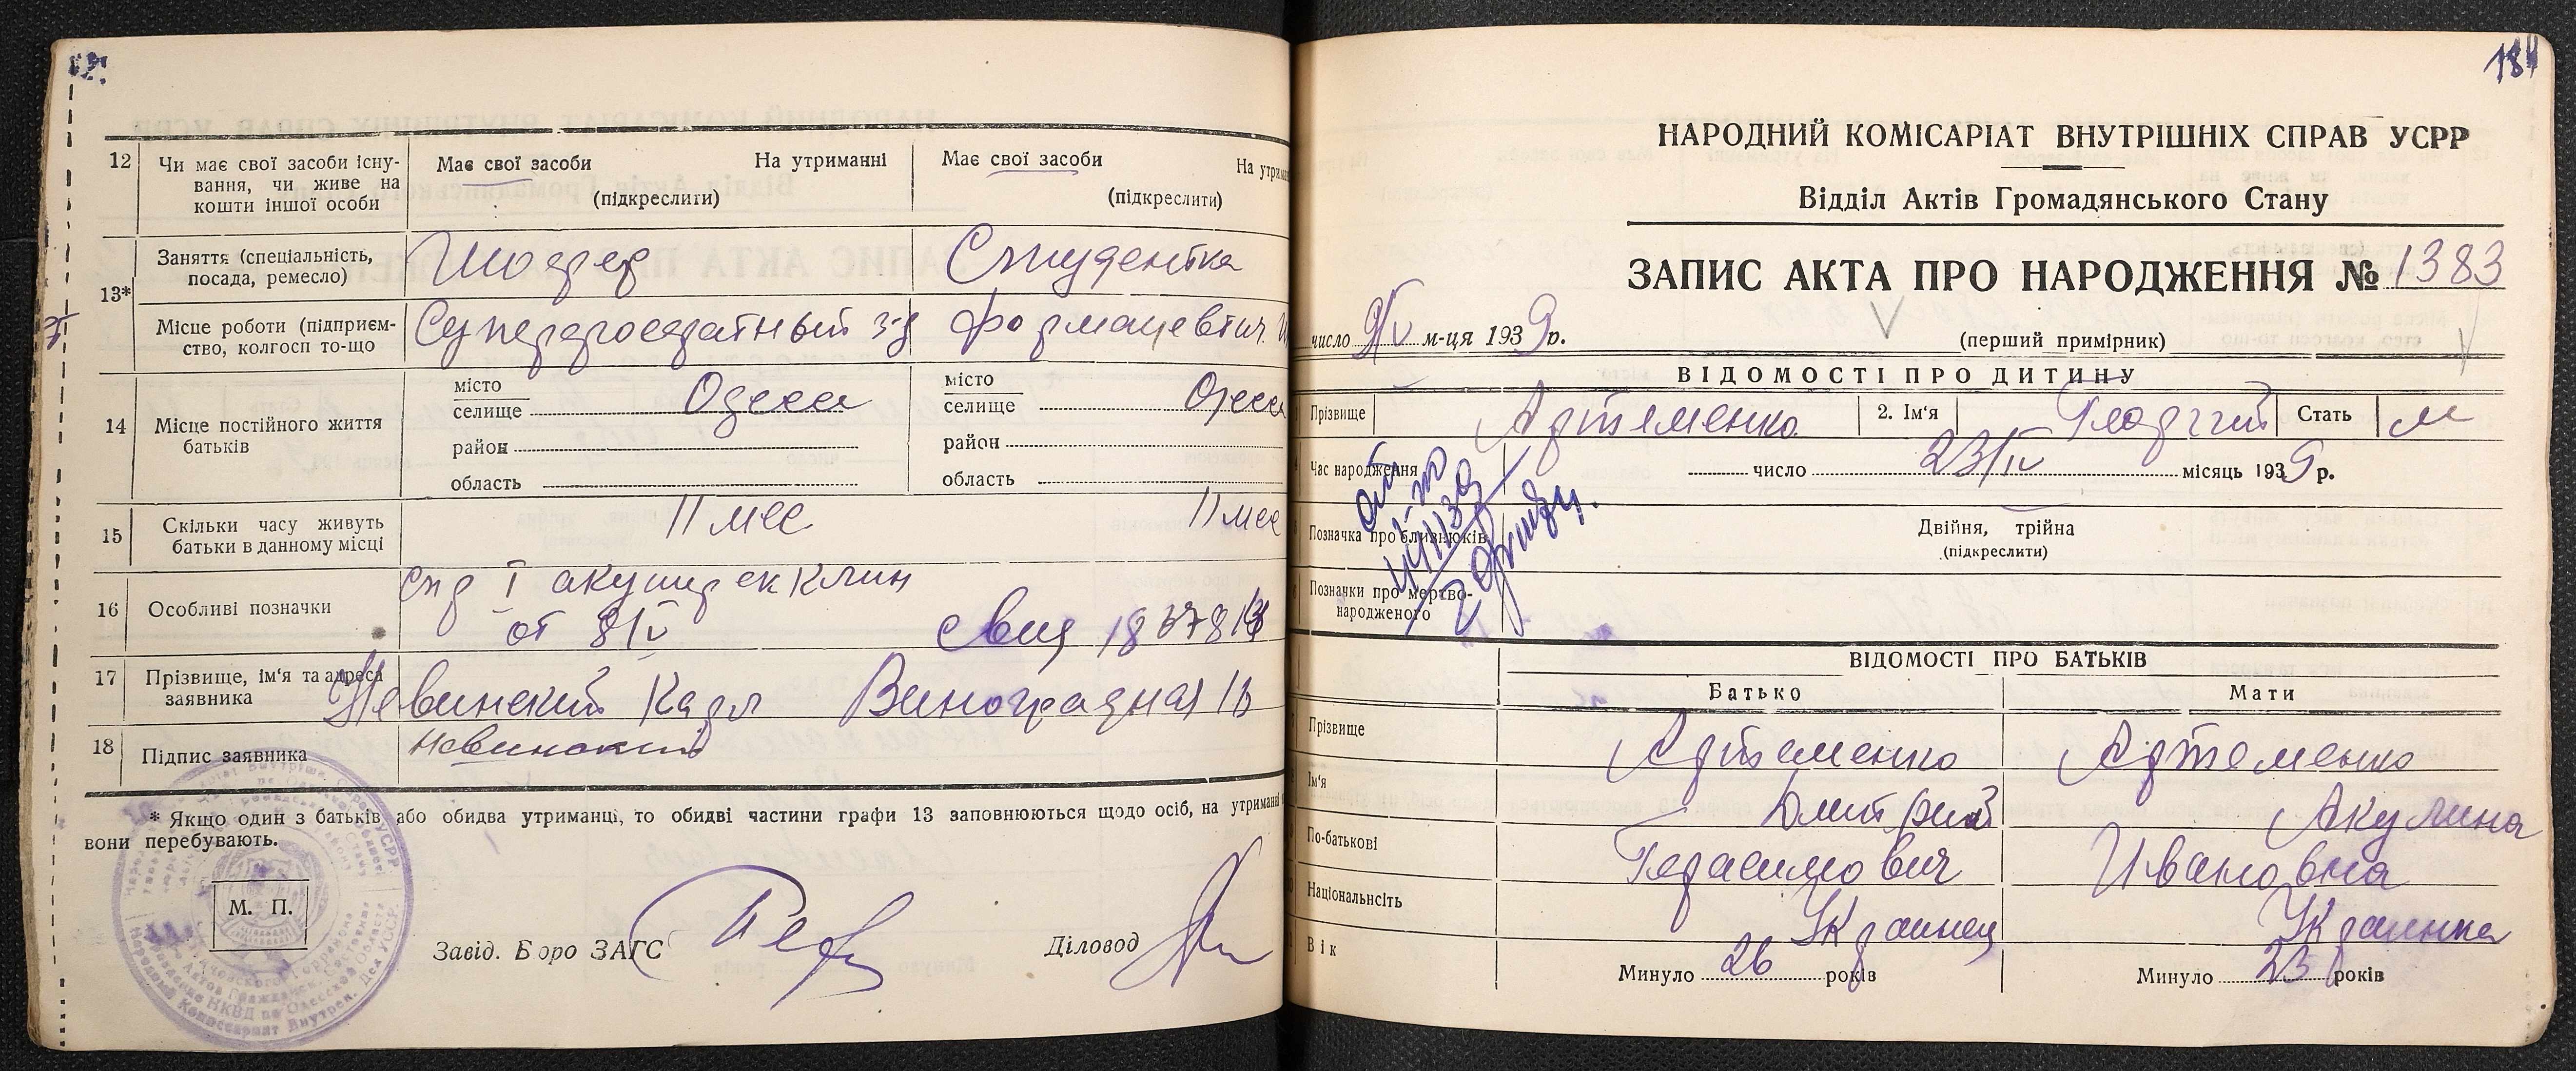 12 Чи має свої засоби існування, чи живе на кошти іншої особи
Має свої засоби На утриманні
(підкреслити)
Має свої засоби На утрим
(підкреслити)
13* Заняття (спеціальність, посада, ремесло)
Шофер
Студентка
Місце роботи (підприємство, колгосп то-що
Суперфосфатный з-д
формацевтич. И
14 Місце постійного життя батьків
місто
селище Одесса
район
область
місто
селище Одесса
район
область
15 Скільки часу живуть батьки в данному місці
11 мес
11 мес
16 Особливі позначки
спр I акушерск клин
от 8/V
17 Прізвище, ім'я та адреса заявника
Невинский Карл Виноградная
18 Підпис заявника
Невинский
* Якщо один з батьків або обидва утриманці, то обидві частини графи 13 заповнюються щодо осіб, на утриманні
вони перебувають.
М. П.
Завід. Бюро ЗАГС
Діловод
184
НАРОДНИЙ КОМІСАРІАТ ВНУТРІШНІХ СПРАВ УСРР
Відділ Актів Громадянського Стану
ЗАПИС АКТА ПРО НАРОДЖЕННЯ № 1383
число 9/V м-ця 1939 р.
(перший примірник)
ВІДОМОСТІ ПРО ДИТИНУ
Прізвище Артеменко 2. Ім'я Георгий Стать м
Час народження число 23/IV місяць 1939 р.
Позначка про близнюків
Двійня, трійна
(підкреслити)
Позначки про мертвонародженого
ВІДОМОСТІ ПРО БАТЬКІВ
Батько Мати
Прізвище Артеменко Артеменко
Ім'я Дмитрий Акулина
По-батькові Герасимович Ивановна
Національнсіть Украинец Украинка
Вік Минуло 26 років Минуло 23 років